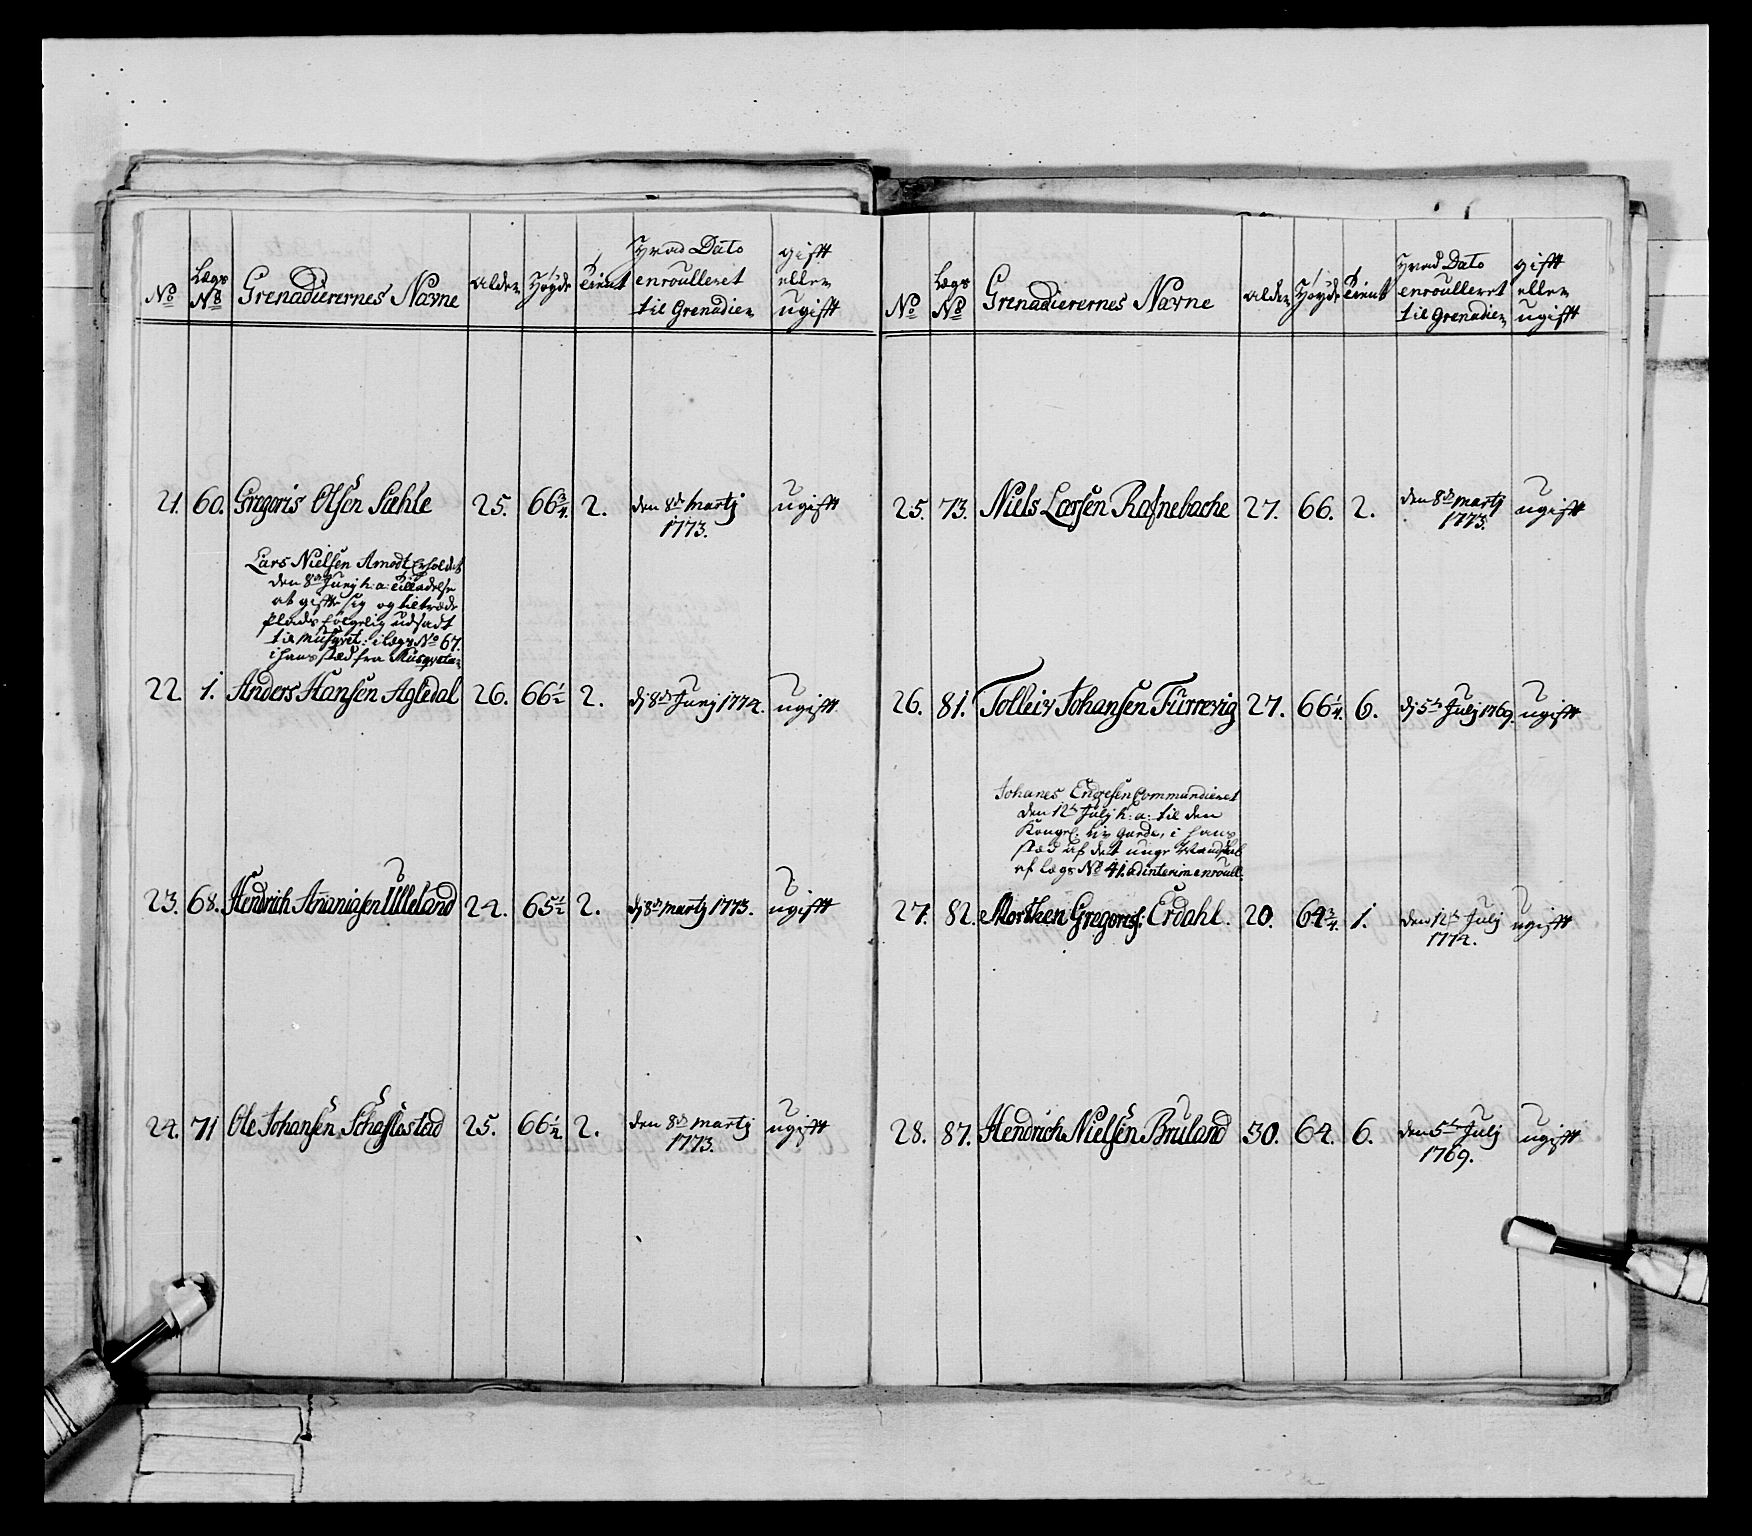 No
Lægs No
Grenadierernes Navne
alder
Høyde
Tient
Hvad Dato enroulleret til Grenadier
gift eller ugift
21. 60. Gregoris Olsen Sæhle 25. 66¾. 2. den 8de Martj 1773. ugift
Lars Nielsen Amodt Erholdet
den 8de Junj h: a: Tilladelse
at gifte sig og tiltræde
Plads følgelig udsadt
til Musqvet: i Lægs No 67.
i hans stæd fra Musqveteer
22 1. Anders Hansen Agledal 26. 66½ 2. dj 8de Junj 1774. ugift
23. 68. Hendrich Ananiasen Ulleland 24. 65½ 2. dj 8de Martj 1773. ugift
24. 71 Ole Johansen Schaflestad 25. 66½. 2. den 8de Martj 1773. ugift
No
Lægs No
Grenadierernes Navne
alder
Høyde
Tient
Hvad Dato enroulleret til Grenadier
gift eller ugift
25. 73. Niels Larsen Rafnebache 27. 66. 2. den 8de Martj 1773. ugift
26. 81. Tolleiv Johansen Turrevig 27. 66¼. 6. dj 5te Julj 1769. ugift
Johanes Endresen Commanderet
den 12te Julj h: a: til den
Kongel: Liv Garde, i hans
stæd af det unge Mandskab
af Lægs No 41. ad interim enroull:
27. 82. Morthen Gregores: Erdahl. 20. 64¾. 1. den 12te Julj 1774. ugift
28. 87. Hendrich Nielsen Bruland 30. 64. 6. den 5te Julj 1769. ugift